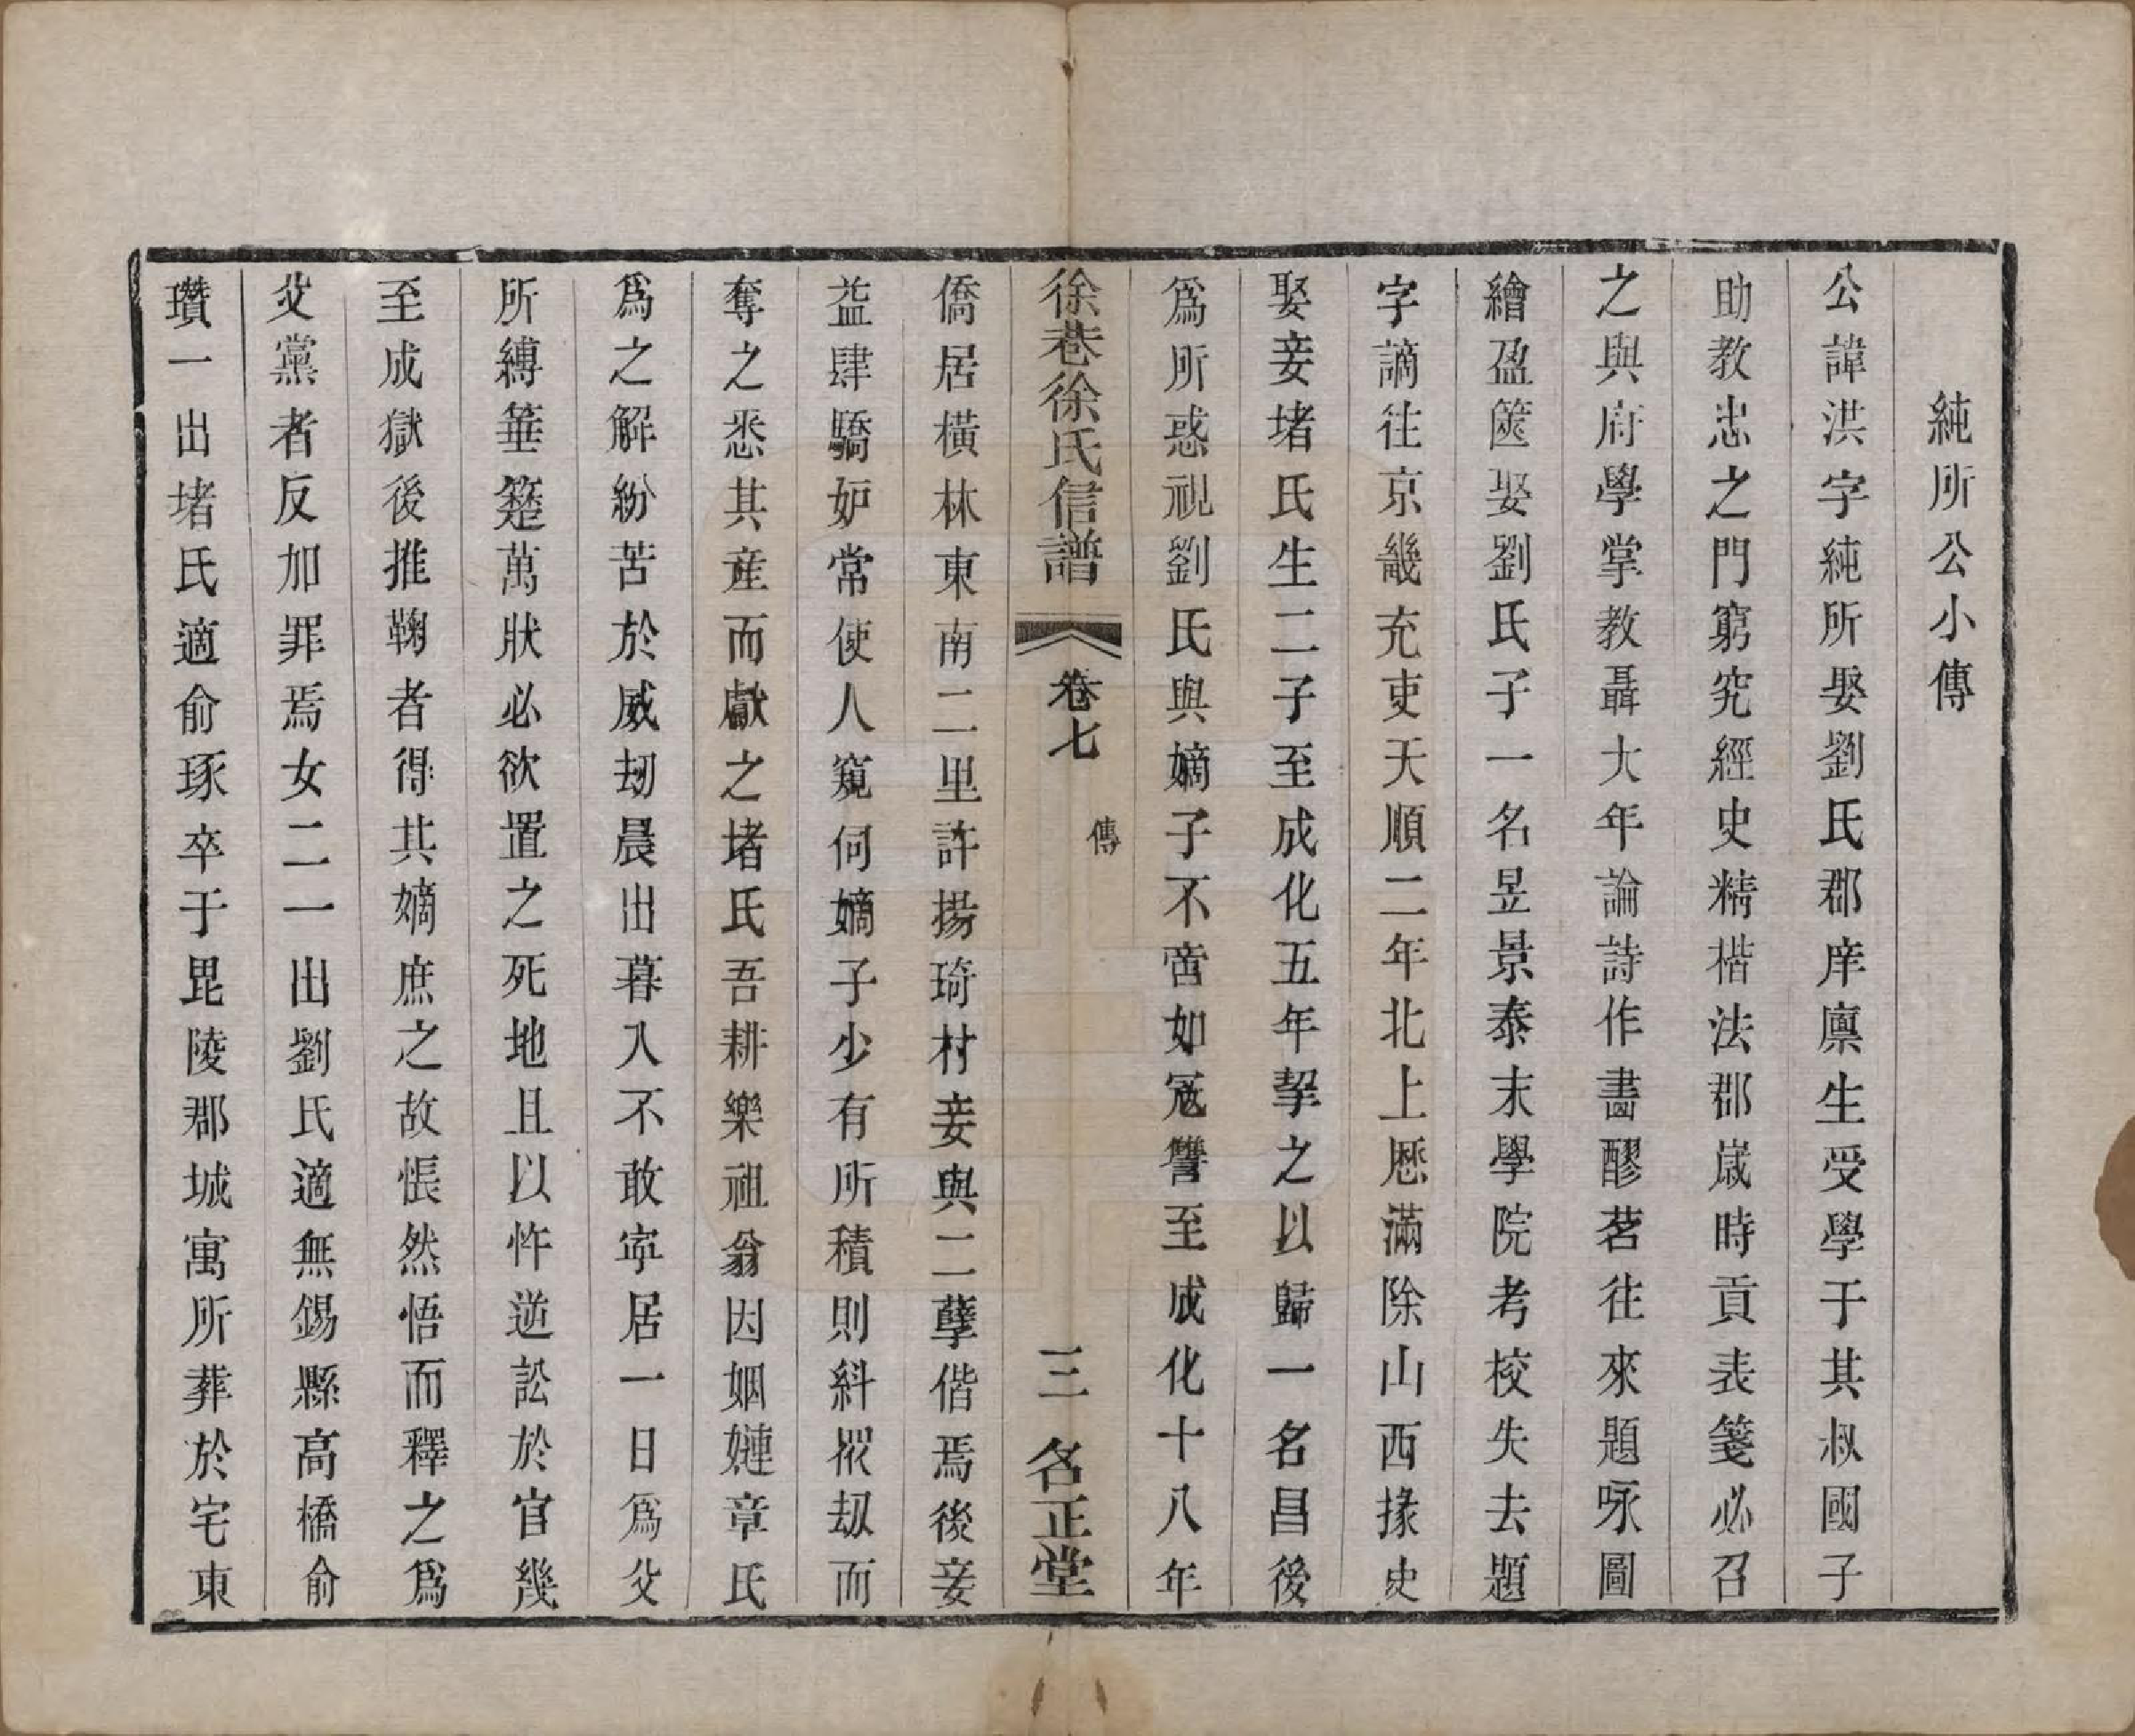 純所公小傳
公諱洪字純所娶劉氏郡庠廪生受學于其叔國子
助教忠之門窮究經史精楷法郡歲時貢表箋必召
之與府學掌教聶大年論詩作畵醪茗往來題咏圖
繪盈篋娶劉氏子一名昱景泰末學院考校失去題
字謫往京畿充吏天順二年北上歷滿除山西掾史
娶妾堵氏生二子至成化五年挈之以歸一名昌後
爲所惑視劉氏與嫡子不啻如寇讐至成化十八年
徐巷徐氏信譜
卷七
傳
三
名正堂
僑居橫林東南二里許揚琦村妾與二孽偕焉後妾
益肆驕妒常使人窺伺嫡子少有所積則糾衆刼而
奪之悉其產而獻之堵氏吾耕樂祖翁因姻娌章氏
爲之解紛苦於威刼晨出暮入不敢寧居一日爲父
所縛箠楚萬狀必欲置之死地且以忤逆訟於官幾
至成獄後推鞫者得其嫡庶之故悵然悟而釋之爲
父黨者反加罪焉女二一出劉氏適無錫縣高橋俞
瓚一出堵氏適俞琢卒于毘陵郡城寓所葬於宅東